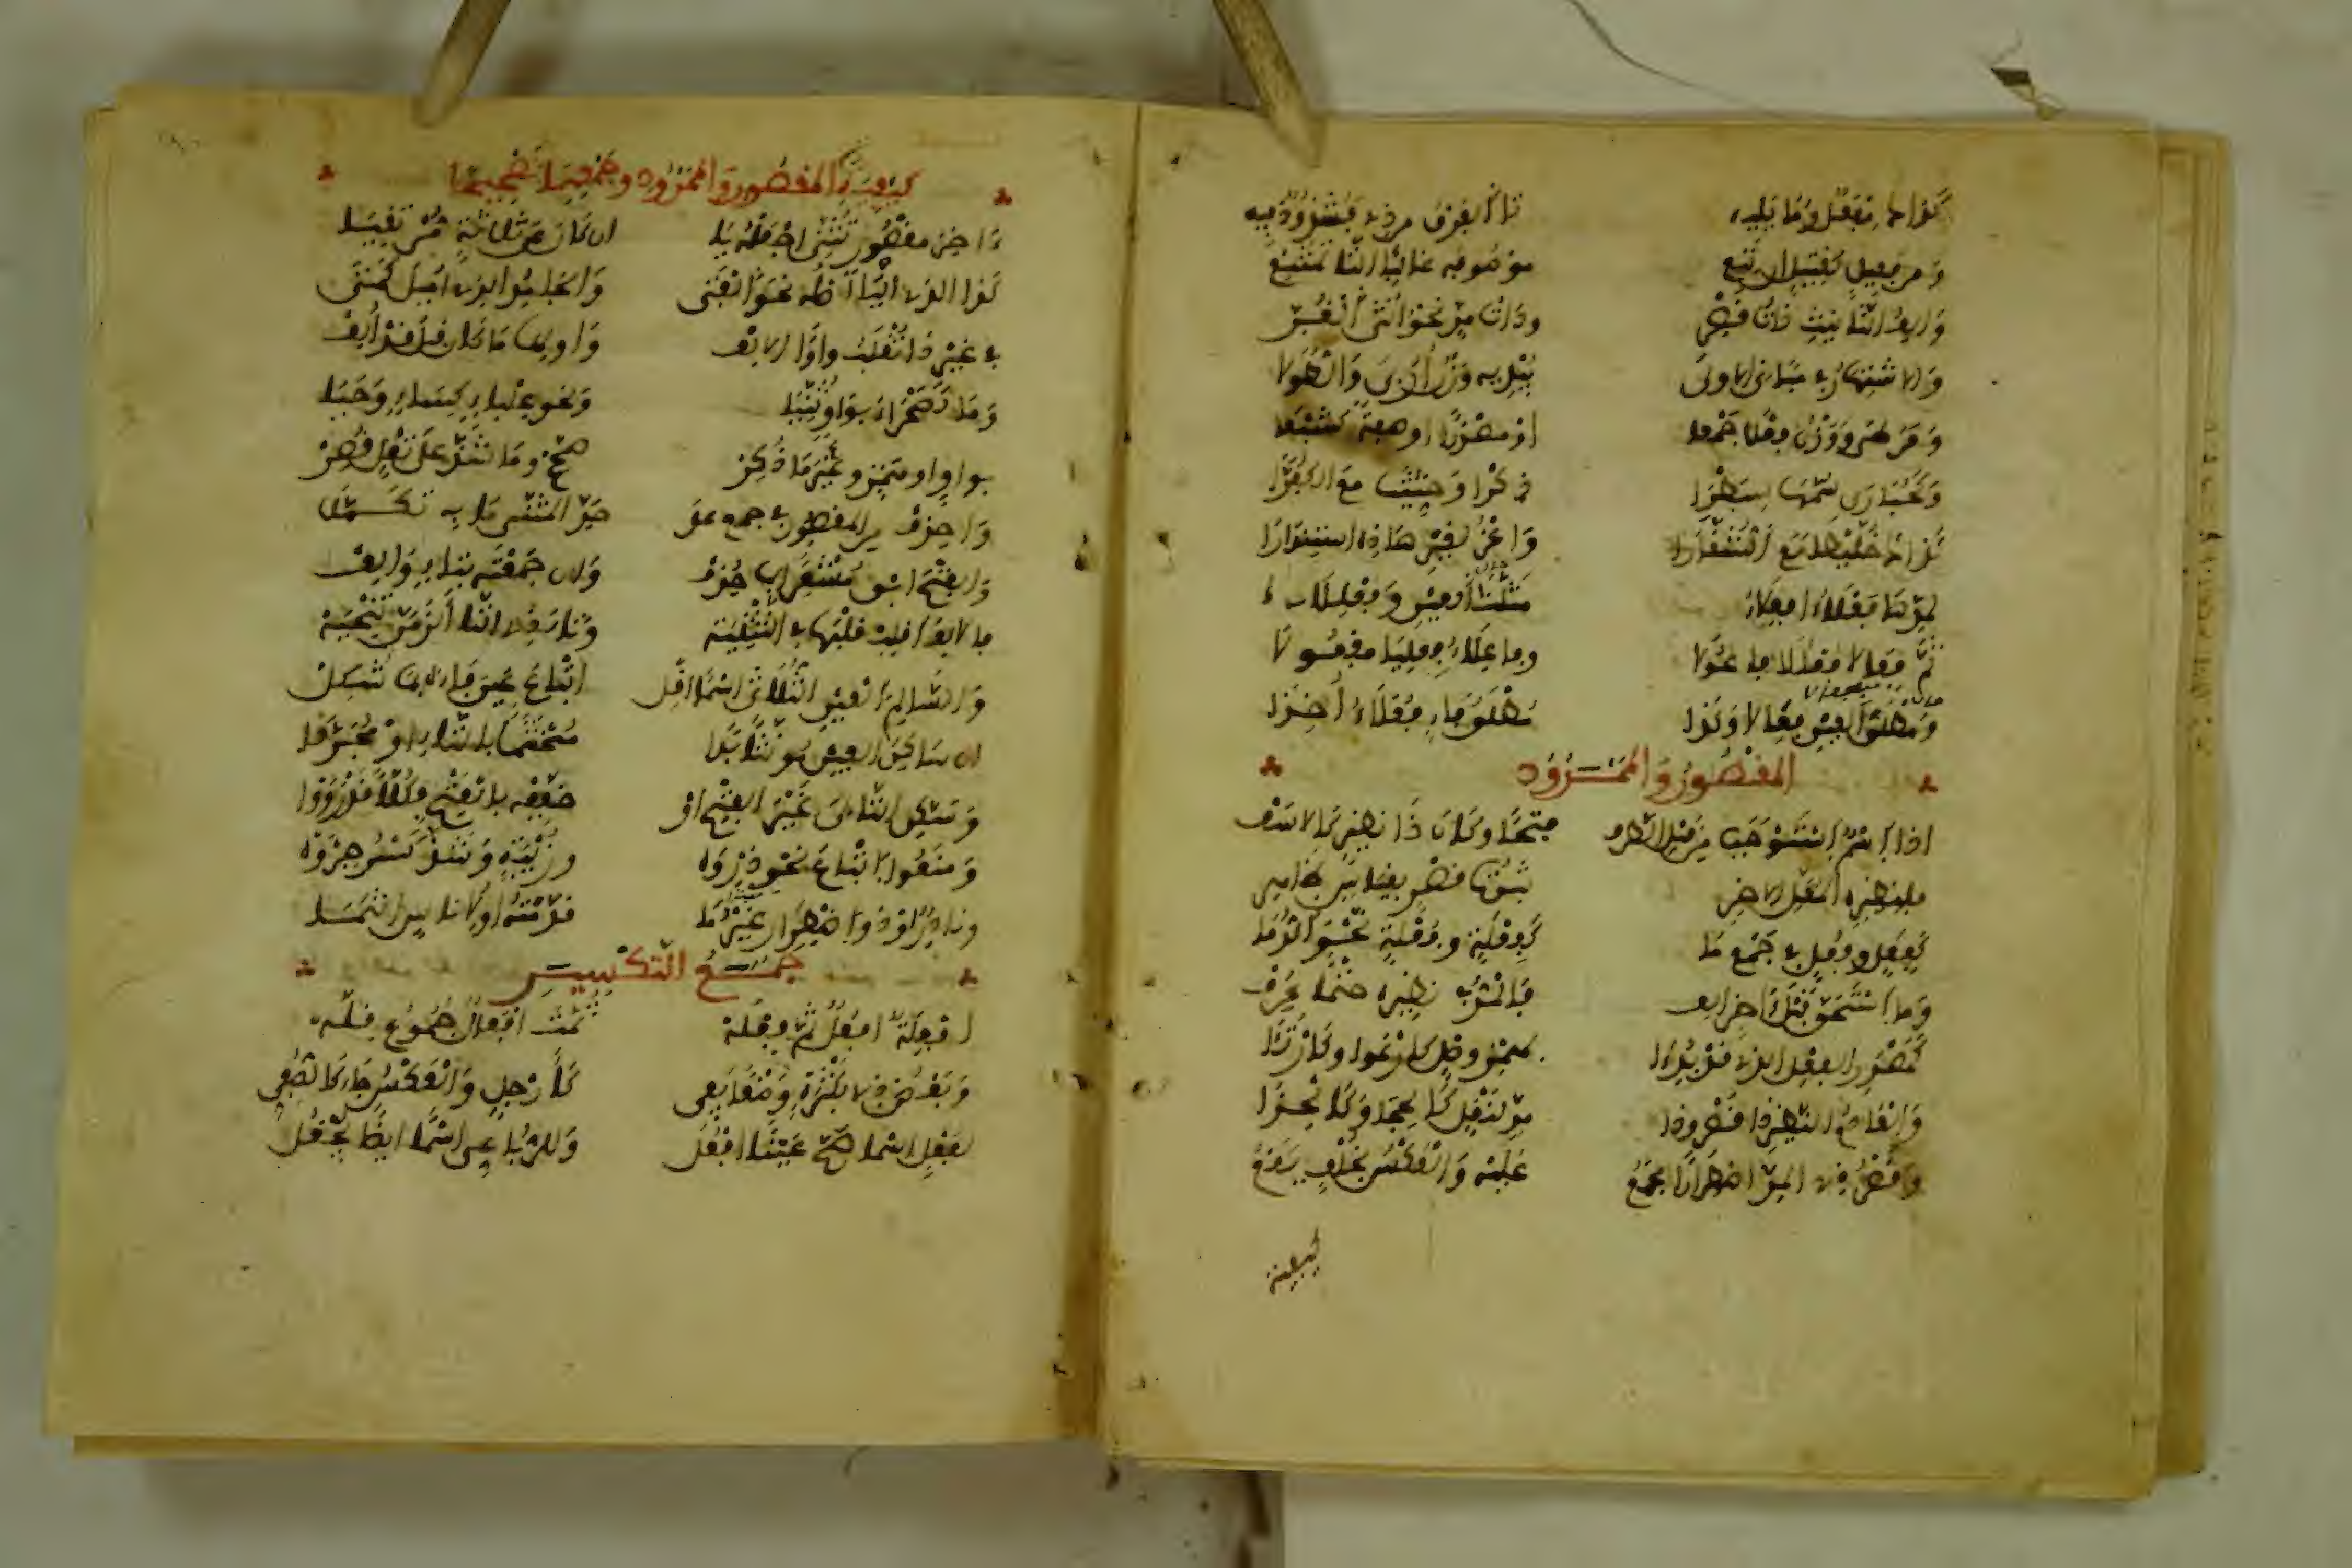 كذاك مفعل وما يليه تا الفرق من ذي فشذوذ فيه
ومن فعيل كقتيل ان تبع موصوفه غالبا التا تمتنع
والف التانيث ذات قصر وذات مد نحو انثى الغر
والاشتهار في مباني الاولى يبديه وزن اربى والطولى
ومرطى ووزن فعلى جمعا او مصدرا او صفة كشبعى
وكحبارى سمهى سبطرى ذكرى وحثيثى مع الكفرى
كذاك خليطى مع الشقارى واعز لغير هذه استندارا
لمدها فعلاء افعلاء مثلث العين وفعللاء
ثم فعالا فعللا فاعولا وفاعلاء فعليا مفعولا
ومطلق العين فعالا وكذا مطلق فاء فعلاء اخذا
المقصور والممدود
اذا اسم استوجب من قبل الطرف فتحا وكان ذا نظير كالاسف
فلنظيره المعل الاخر ثبوت قصر بقياس ظاهر
كفعل وفعل في جمع ما كفعلة وفعلة نحو الدما
وما استحق قبل اخر الف فالمد في نظيره حتما عرف
كمصدر الفعل الذي قد بدئا بهمز وصل كارعوى وكارتأى
والعادم النظير ذا قصر وذا مد بنقل كالحجا وكالحذا
وقصر ذي المد اضطرارا مجمع عليه والعكس بخلف يقع
كيفية
كيفية المقصور والممدود وجمعهما تصحيحا
ءاخر مقصور تثنى اجعله يا ان كان عن ثلاثة مرتقيا
كذا الذي اليا اصله نحو الفتى والجامد الذي اميل كمتى
في غير ذا تقلب واوا الالف واولها ما كان قبل قد الف
وما كصحراء بواو ثنيا ونحو علباء كساء وحيا
بواو او همز وغير ما ذكر صحح وما شذ على نقل قصر
واحذف من المقصور في جمع على حد المثنى ما به تكملا
والفتح ابق مشعرا بما حذف وان جمعته بتاء والف
فالالف اقلب قلبها في التثنية وتاء ذي التا الزمن تنحيه
والسالم العين الثلاثي اسما انل اتباع عين فاءه بما شكل
ان ساكن العين مونثا بدا مختتما بالتاء او مجردا
وسكن التالي غير الفتح او خففه بالفتح فكلا قد رووا
ومنعوا اتباع نحو ذروه وزبية وشذ كسر جروه
ونادر او ذو اضطرار غير ما قدمته او لاناس انتمى
جمع التكسير
افعلة افعل ثم فعله ثمت افعال جموع قله
وبعض ذي بكثرة وضعا يفي كارجل والعكس جاء كالصفي
لفعل اسما صح عينا افعل وللرباعي اسما ايضا يجعل